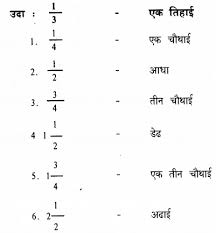 उदा : 1/3 - एक तिहाई
1. 1/4 - एक चौथाई
2. 1/2 - आधा
3. 3/4 - तीन चौथाई
4 1 1/2 - डेढ
5. 1 3/4 - एक तीन चौथाई
6. 2 1/2 - अढाई